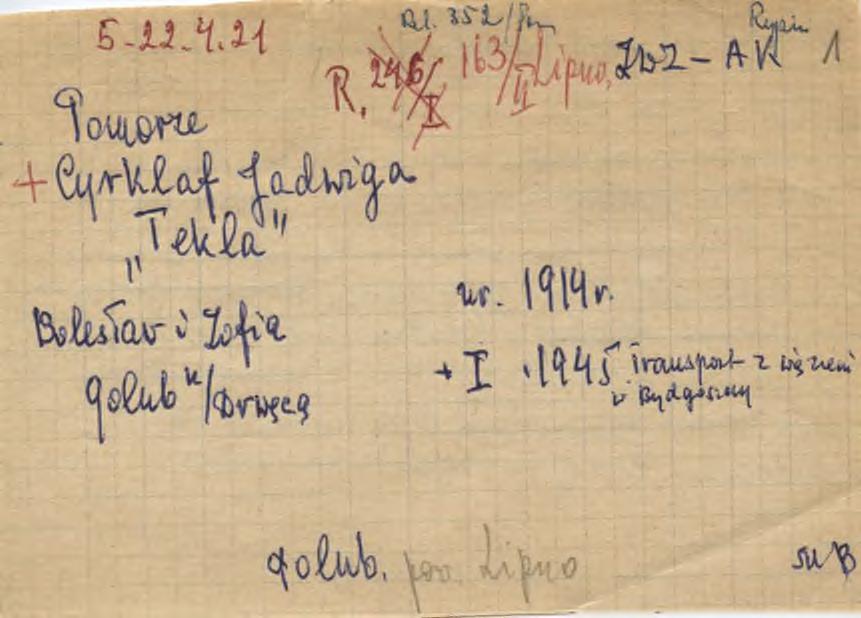 5-22.4.21
Rel. 352/Pm
Rypin
R. 246/I 163/II Lipno, ZWZ - AK 1
Pomorze
+ Cyrklaf Jadwiga
„Tekla"
ur. 1914 r.
Bolesław i Zofia
+ I .1945 Transport z więzieni
w Bydgoszczy
Golub n/Drwęcą
Golub. pow. Lipno